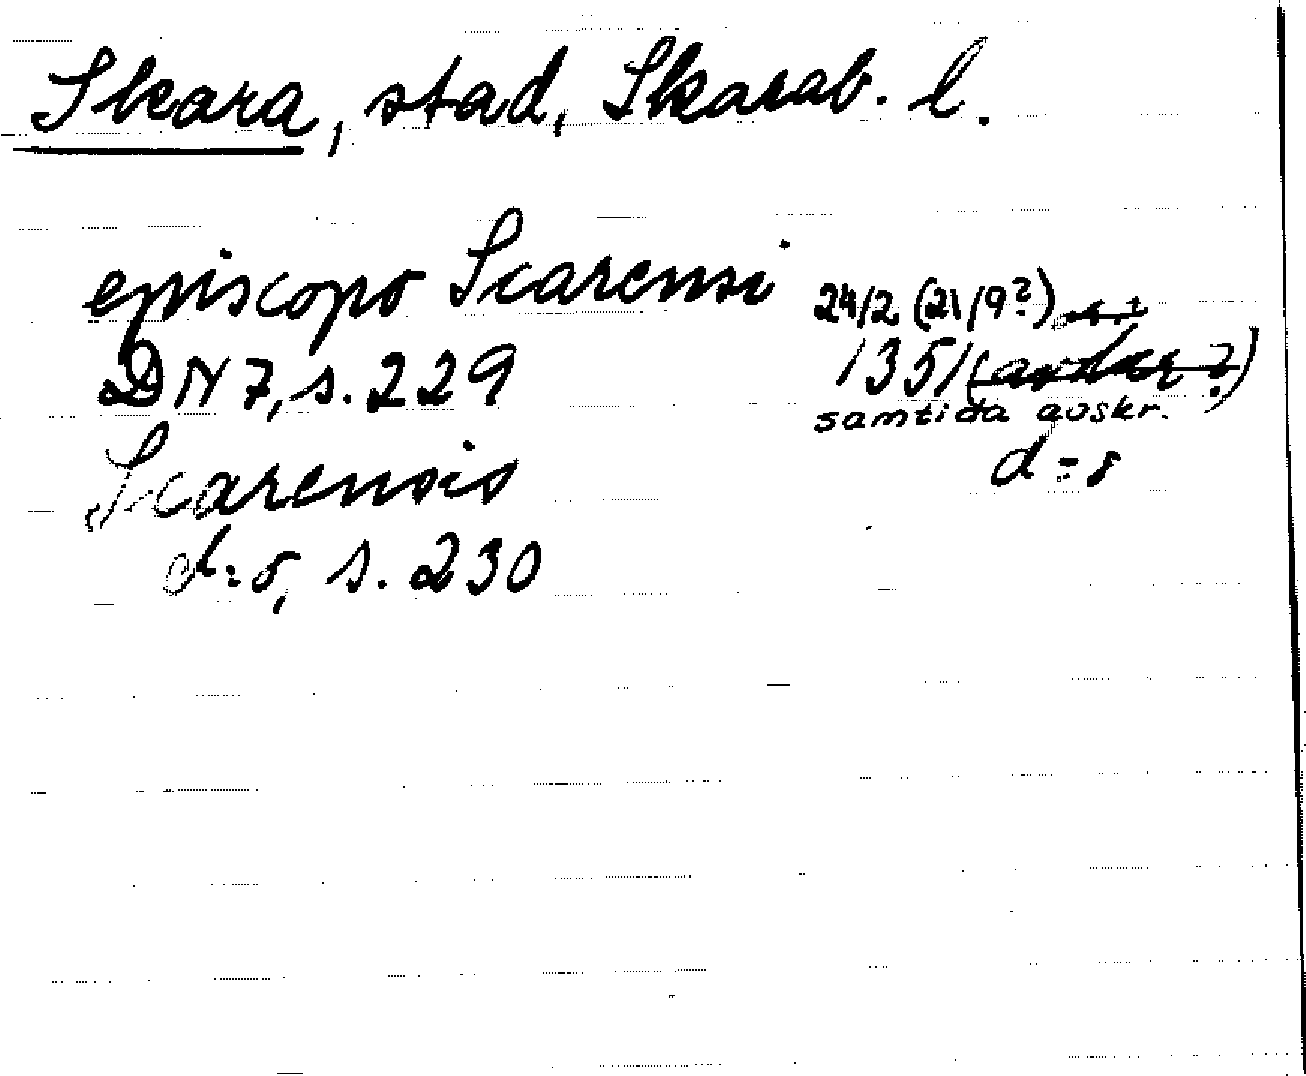 Skara, stad, Skarab. l.
episcopo Scarensi 24/2 (21/9?)
DN 7, s. 229 1351 (avskr?)
samtida avskr.
Scarensis d=s
d=s, s. 230